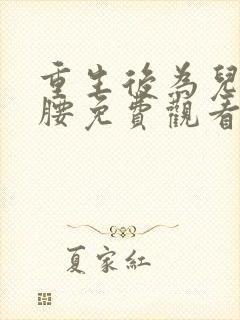 重生後為兒
腰免費觀看
夏家紅